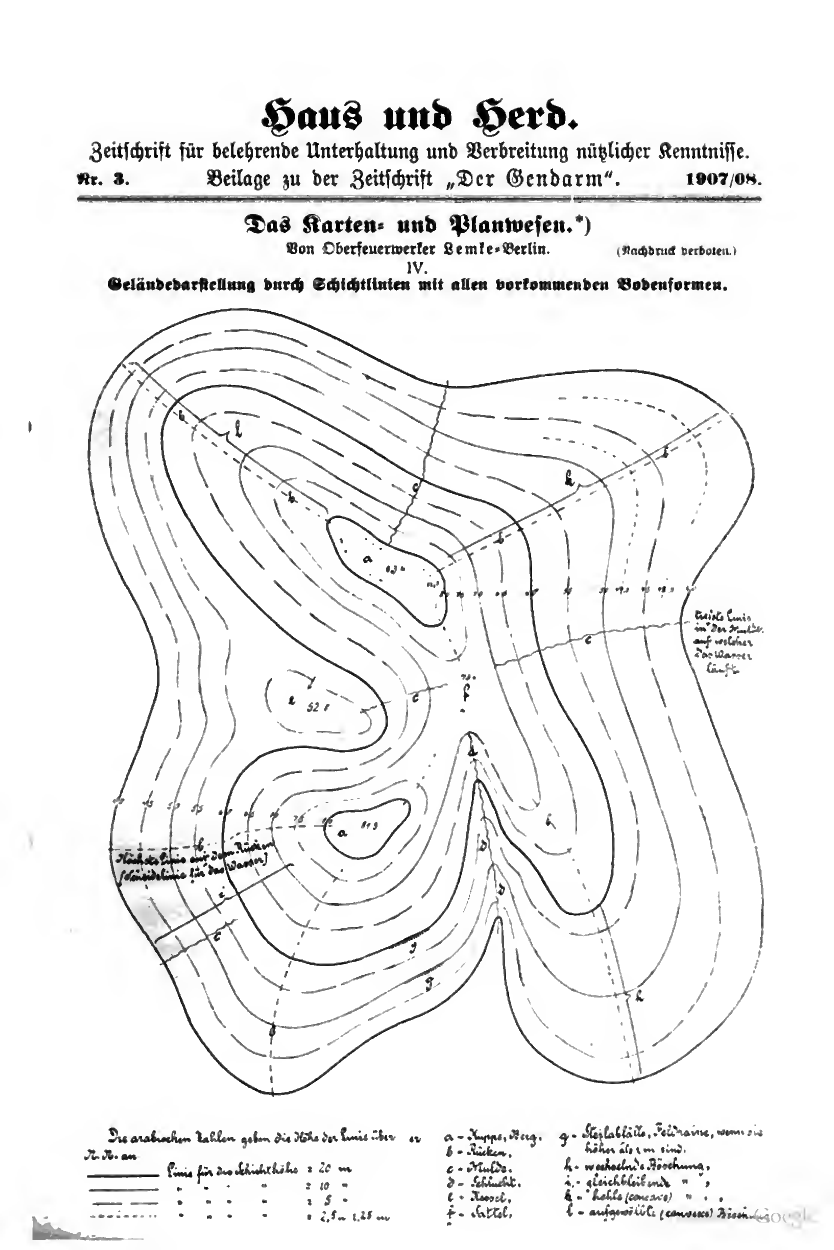 Haus und Herd.
Zeitschrift für belehrende Unterhaltung und Verbreitung nützlicher Kenntnisse.
Nr. 3. Beilage zu der Zeitschrift „Der Gendarm“. 1907/08.
Das Karten- und Planwesen.*)
Von Oberfeuerwerker Lemke-Berlin. (Nachdruck verboten.)
IV.
Geländedarstellung durch Schichtlinien mit allen vorkommenden Bodenformen.
b
l
b
c
k
b
b
a
tiefste Linie
in der Mulde,
auf welcher
das Wasser
läuft.
c
e 52
c
f
d
b
a
b
Höchste Linie auf dem Rücken
(Scheidelinie für das Wasser)
D
D
i
c
g
g
h
Die arabischen Zahlen geben die Höhe der Linie über
N.N. an
Linie für die Schichthöhe = 20 m
" " " " = 10 "
" " " " = 5 "
" " " " = 2,5 u 1,25 m
a - Kuppe, Berg.
b - Rücken,
c - Mulde.
d - Schlucht.
e - Kessel,
f - Sattel,
g - Steilabfälle, Feldraine, wenn sie
höher als 1 m sind.
h - wechselnde Böschung,
i - gleichbleibende " ,
k - hohle (concave) " ,
l - aufgewölbte (convexe)